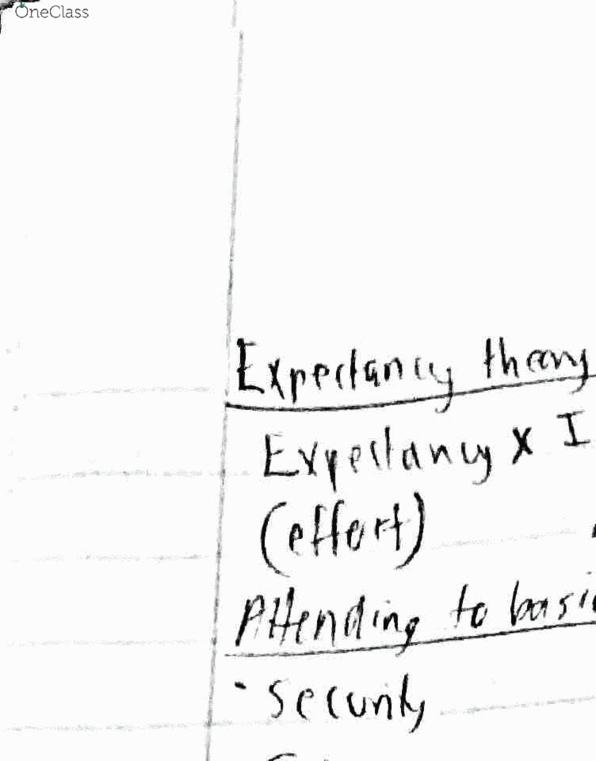 OneClass
Expectancy theory
Expectancy x I
(effort)
Attending to basi
- Security